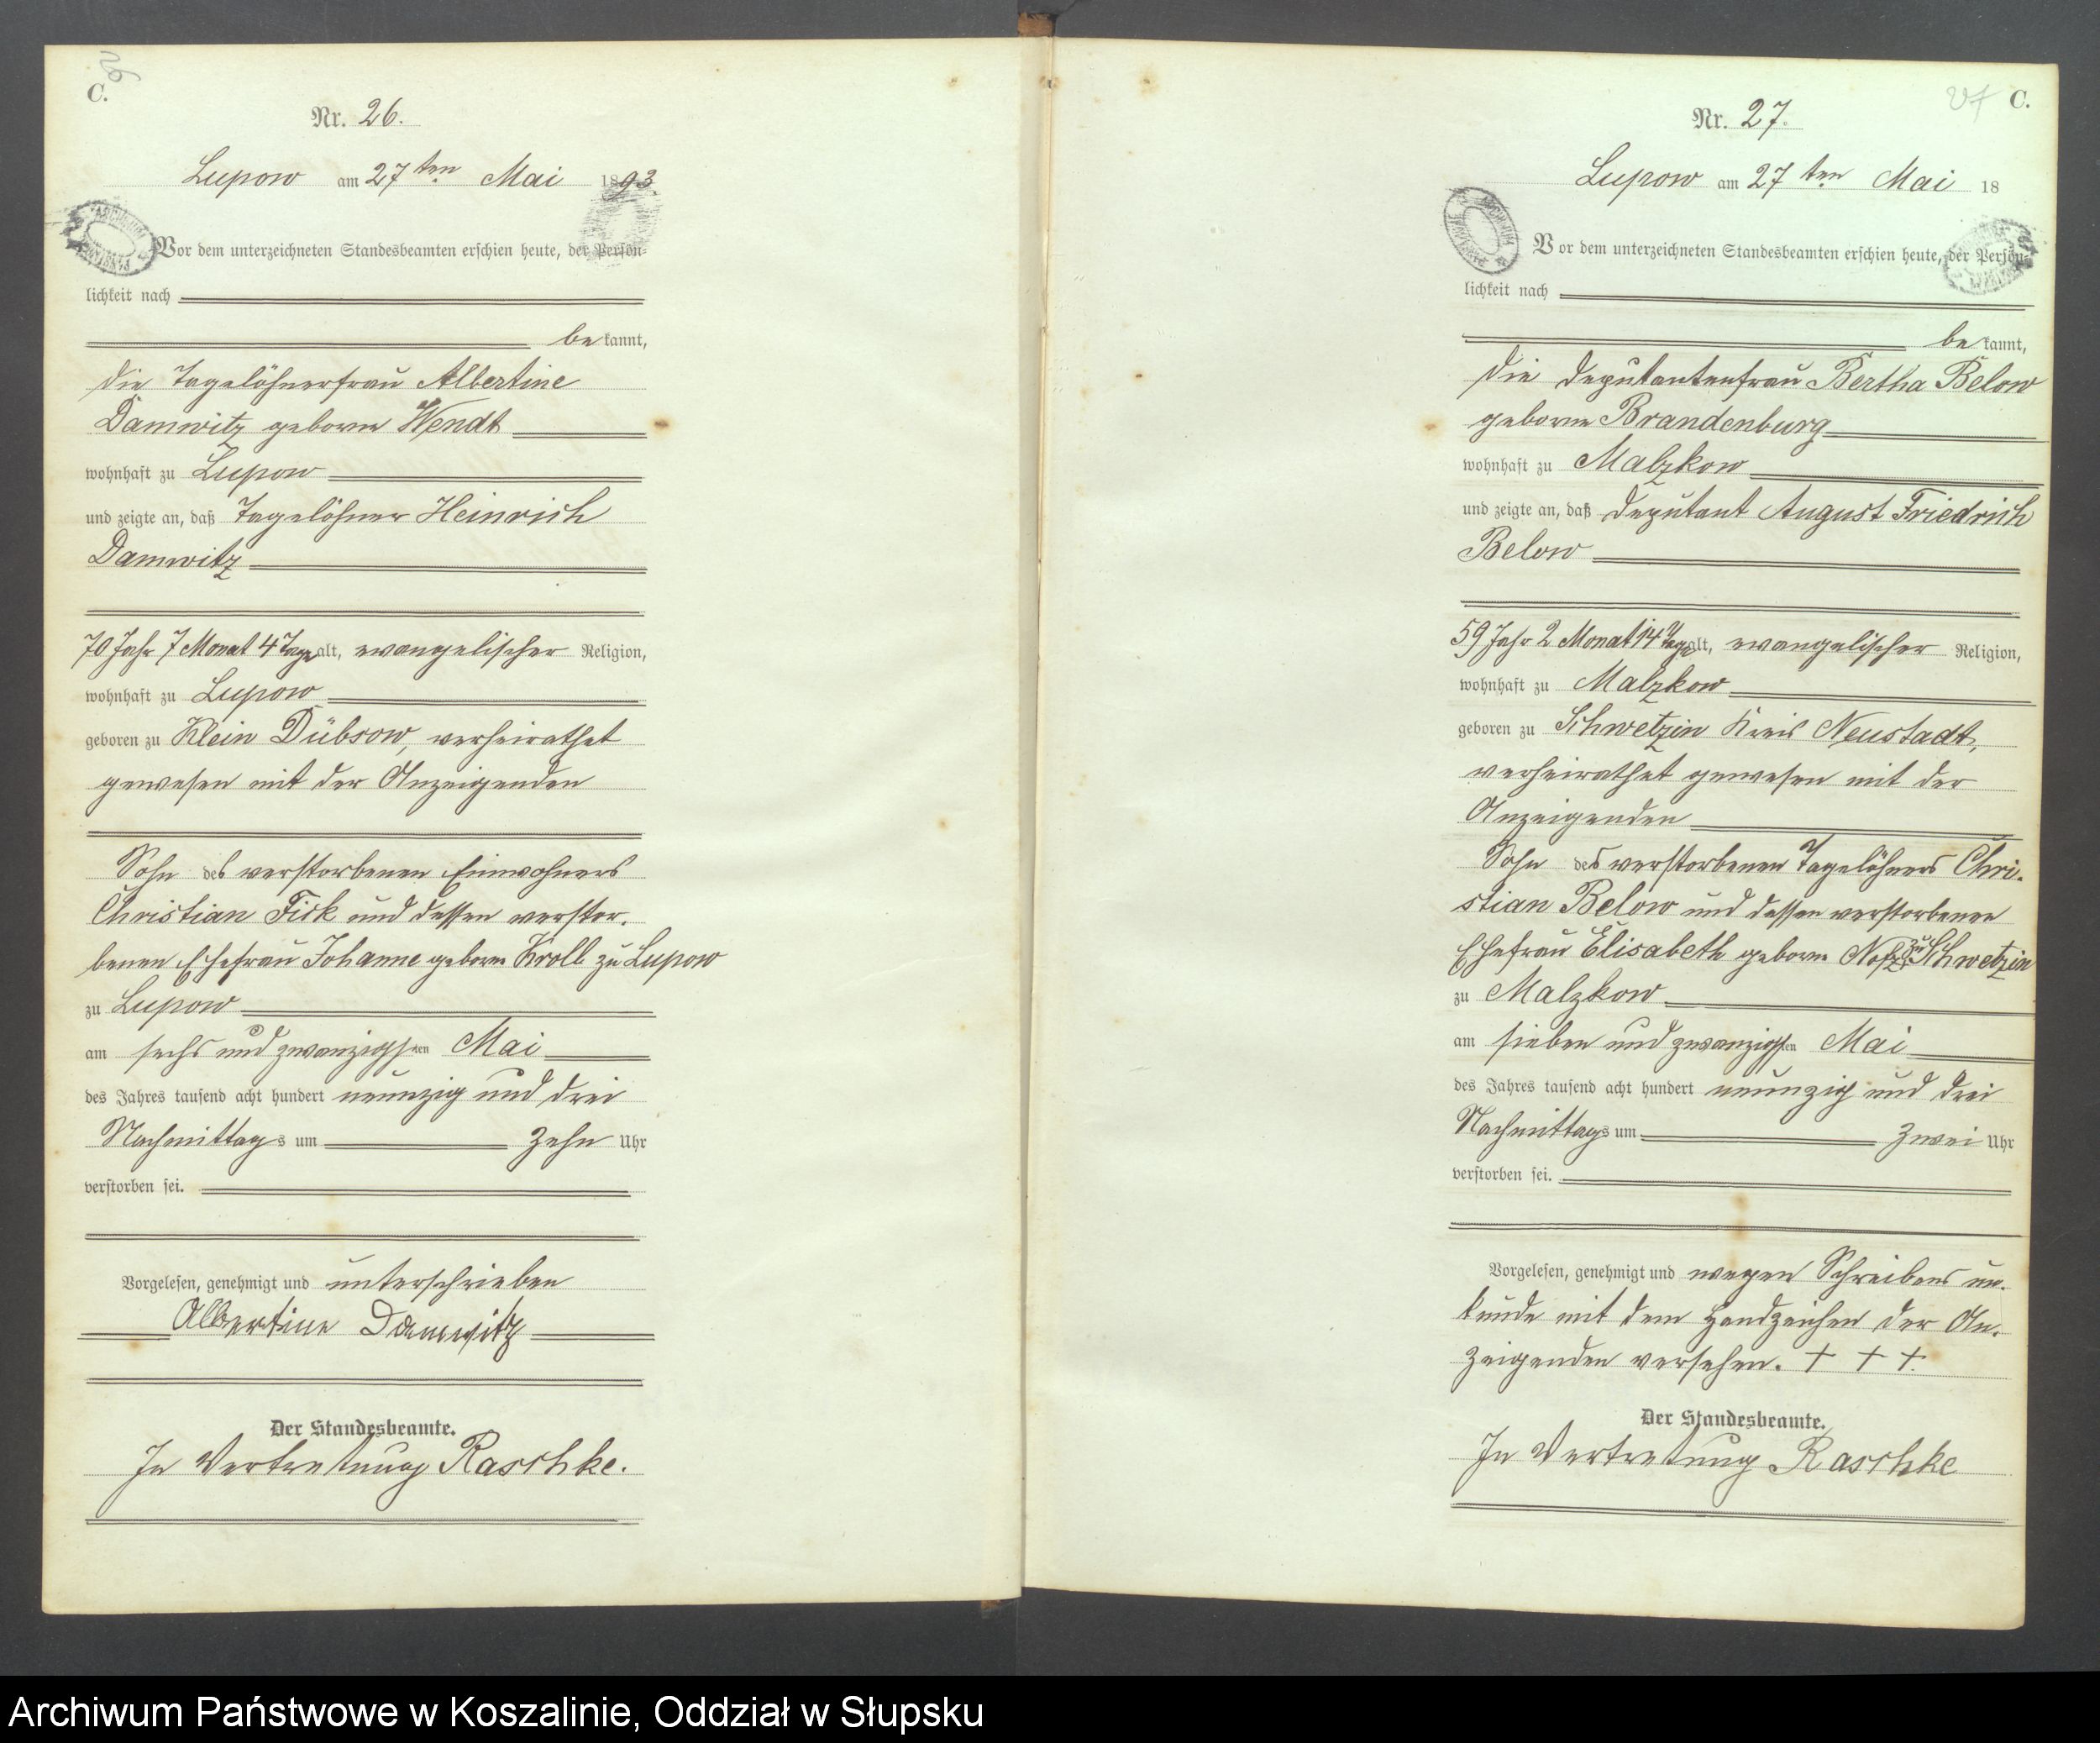 C.
Nr. 26.
Lupow am 27ten Mai 1893.
Vor dem unterzeichneten Standesbeamten erschien heute, der Persön-
lichkeit nach
bekannt,
die Tagelöhnerfrau Albertine
Damwitz geborne Wendt
wohnhaft zu Lupow
und zeigte an, daß Tagelöhner Heinrich
Damwitz
70 Jahr 7 Monat 4 Tage alt, evangelischer Religion,
wohnhaft zu Lupow
geboren zu Klein Dübsow, verheirathet
gewesen mit der Anzeigenden
Sohn des verstorbenen Einwohners
Christian Fick und dessen verstor-
benen Ehefrau Johanne geborne Kroll zu Lupow
zu Lupow
am sechs und zwanzigsten Mai
des Jahres tausend acht hundert neunzig und drei
Nachmittags um zehn Uhr
verstorben sei.
Vorgelesen, genehmigt und unterschrieben
Albertine Damwitz
Der Standesbeamte.
In Vertretung Raschke.
27 C.
Nr. 27.
Lupow am 27ten Mai 18
Vor dem unterzeichneten Standesbeamten erschien heute, der Persön-
lichkeit nach
bekannt,
die Deputantenfrau Bertha Below
geborne Brandenburg
wohnhaft zu Malzkow
und zeigte an, daß Deputant August Friedrich
Below
59 Jahr 2 Monat 14 Tage alt, evangelischer Religion,
wohnhaft zu Malzkow
geboren zu Schwetzin Kreis Neustadt,
verheirathet gewesen mit der
Anzeigenden
Sohn des verstorbenen Tagelöhners Chri-
stian Below und dessen verstorbenen
Ehefrau Elisabeth geborne zu Schwetzin
zu Malzkow
am sieben und zwanzigsten Mai
des Jahres tausend acht hundert neunzig und drei
Nachmittags um zwei Uhr
verstorben sei.
Vorgelesen, genehmigt und wegen Schreibens un-
kunde mit dem Handzeichen der An-
zeigenden versehen. + + +.
Der Standesbeamte.
In Vertretung Raschke
Archiwum Państwowe w Koszalinie, Oddział w Słupsku